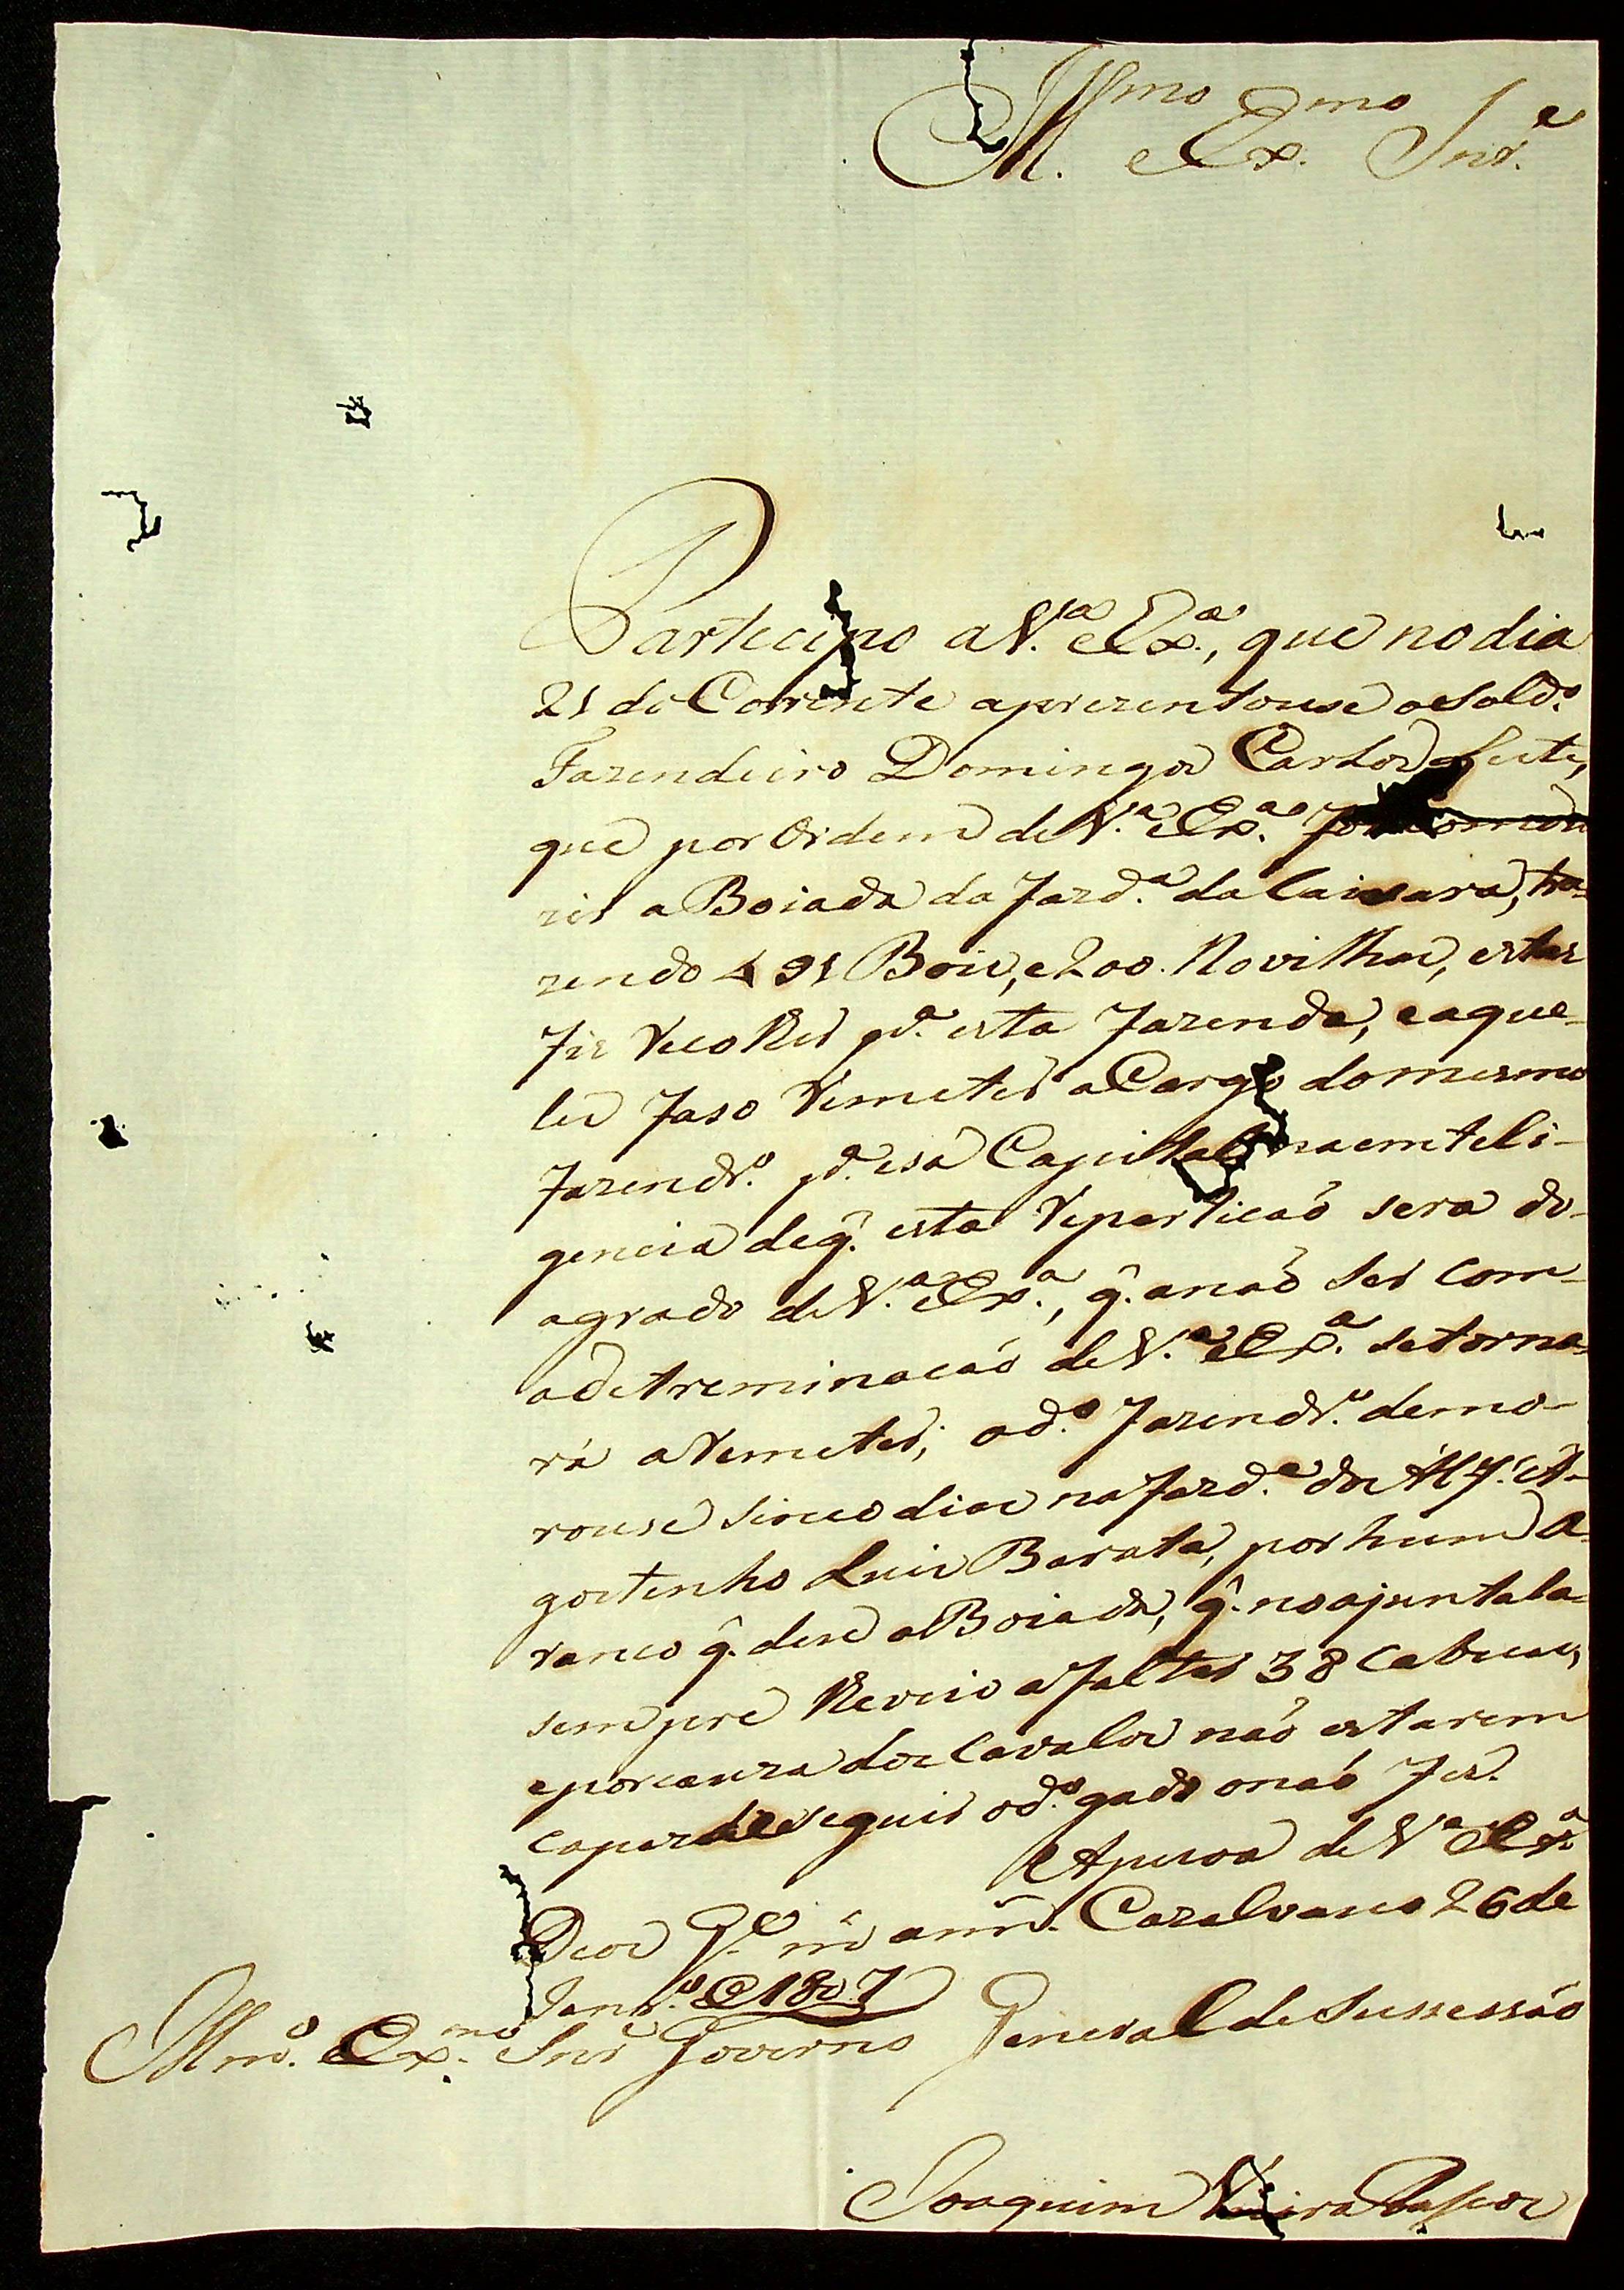 Ill.mo e Ex.mo Snr.e
Partecipo a V.a Ex.a, que no dia
21 do Corrente aprezentouse o Sold.o
Fazendeiro Domingos Carlos Leite,
que por Ordem de V.a Ex.a
zir a Boiada da Fazd.a da Caissara, tra-
zendo 491 Bois, e 200. Novilhas, estas
fis Recolher p.a esta Fazenda, e aque-
les faso Remeter a Cargo do mesmo
Fazendr.o p.a esa Capital na emteli-
gencia de q. esta Reparticaõ sera do
agrado de V.a Ex.a, q. a naõ ser com
a detreminacaõ de V.a Ex.a se torna-
rá a Remeter; o d.o Fazendr.o demo-
rouse sinco dias na Fazd.a do Alf.s A-
gostinho Luis Barata, por hum a-
ranco q. deu a Boiada, q. no ajuntala
sempre Reveio a faltar 38 Cabecas,
e por cauza dos Cavalos naõ estarem
capaz de seguir o d.o gado o naõ fes.
A pesoa de V.a Ex.a
Deos G.e m.s ann.s Cazalvasco 26 de
Janr.o de 1807
Illm.o Ex.mo Snr. Governo General de Sussessaõ
Joaquim Vieira Passos